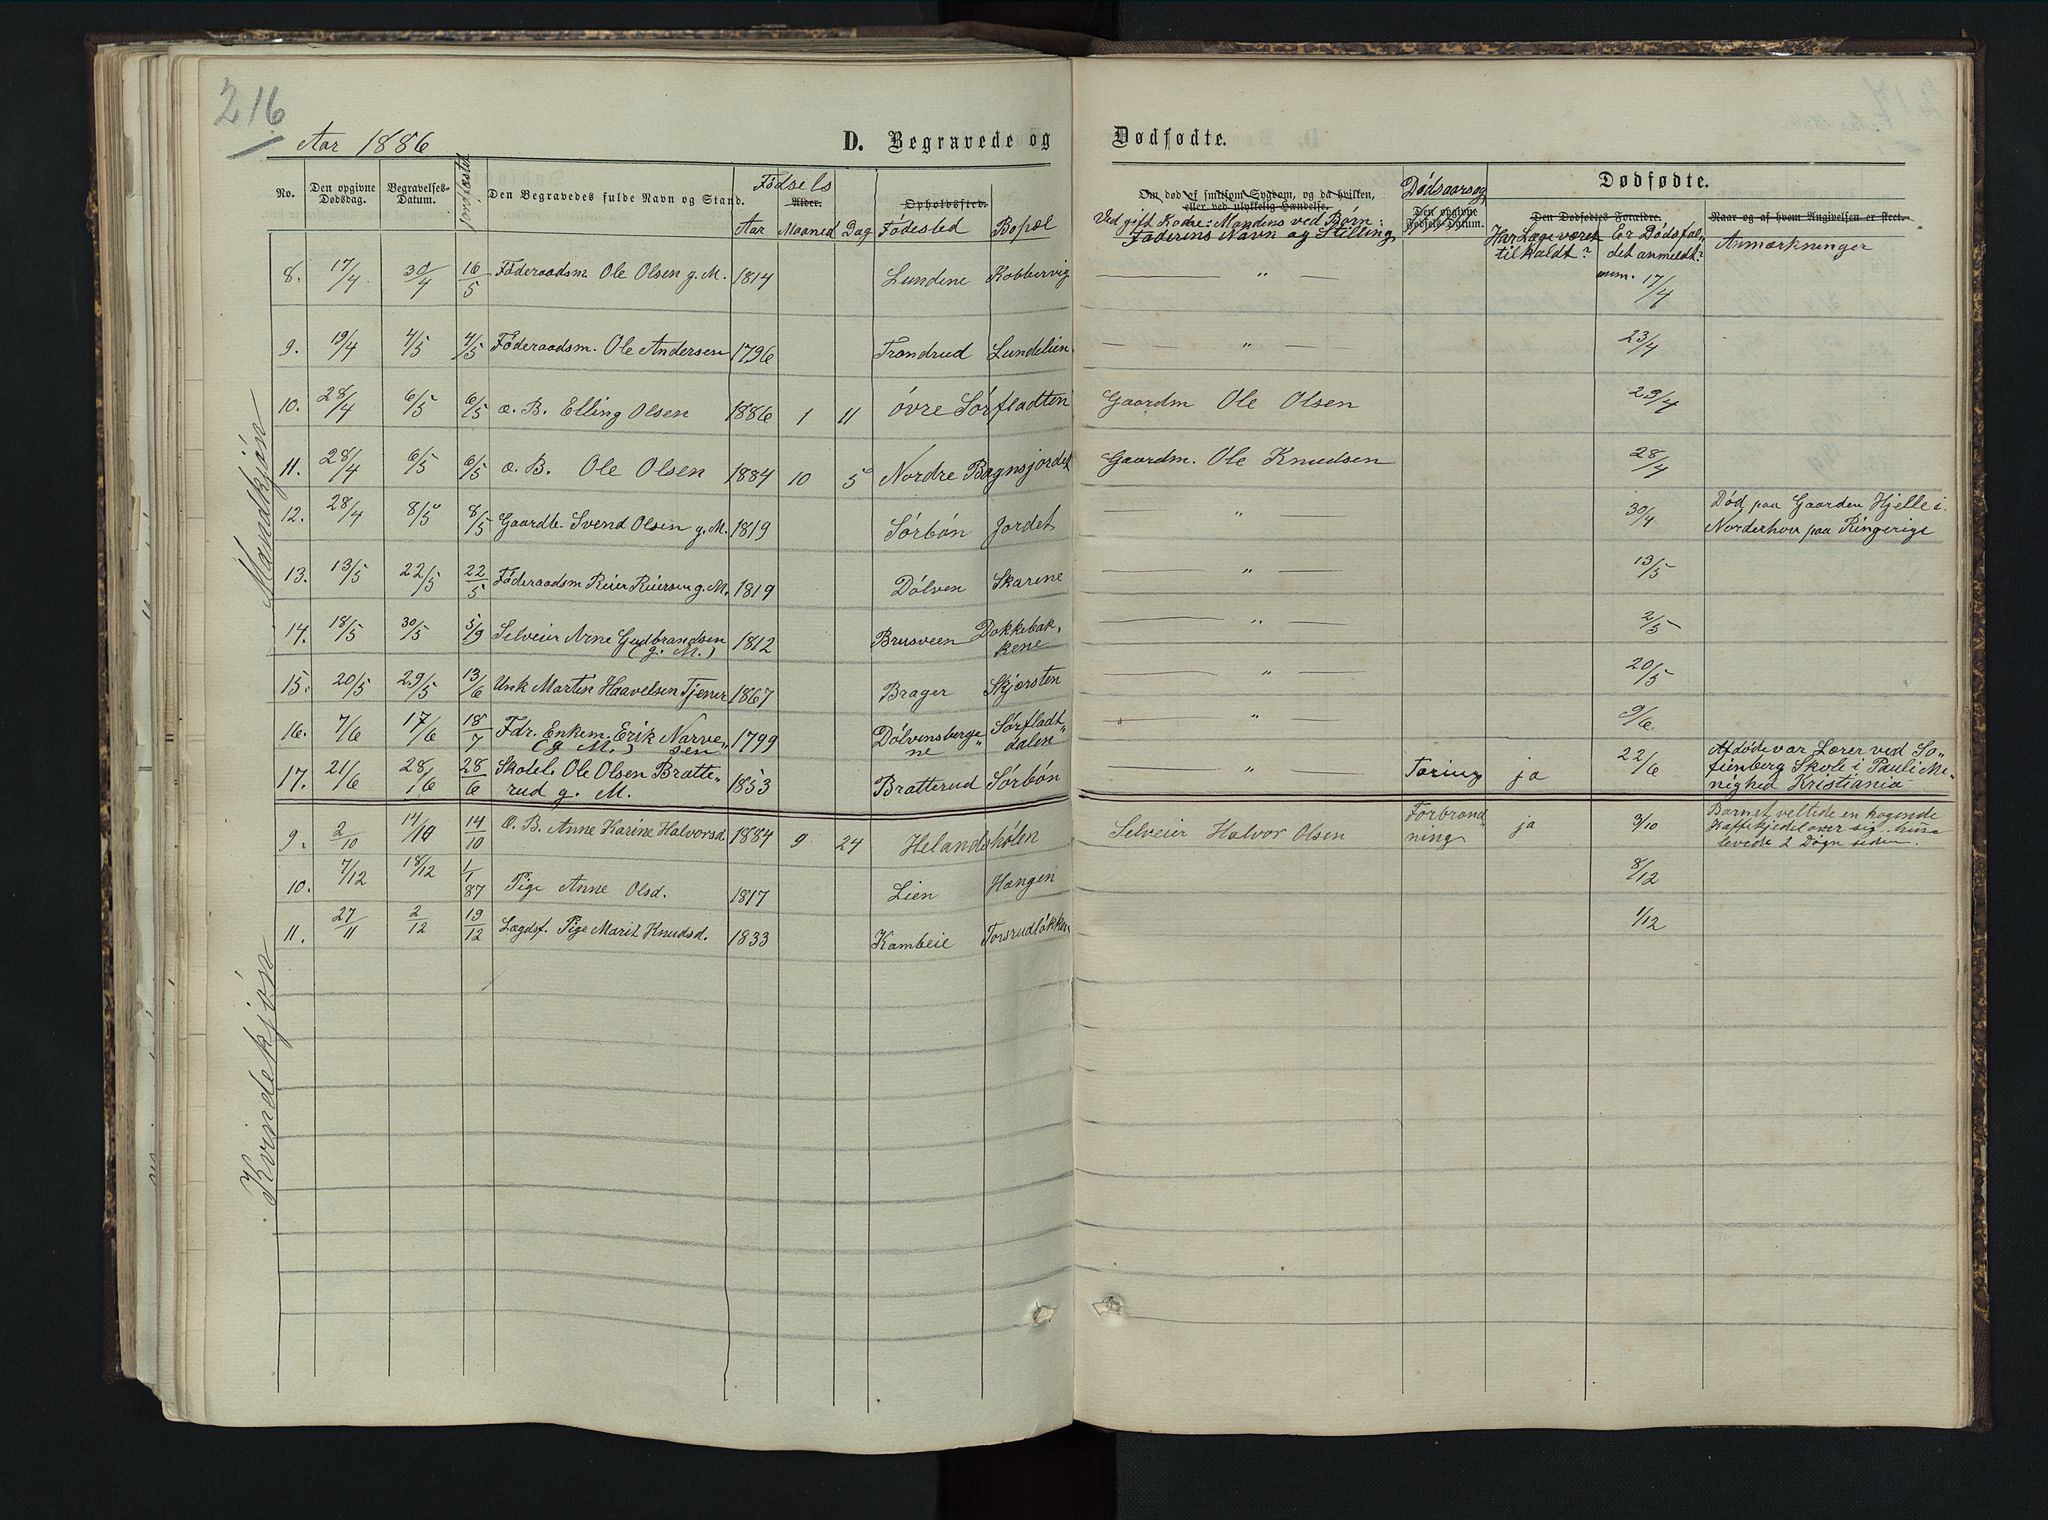 216
Aar 1886 D. Begravede og Dødfødte.
No. Den opgivne Dødsdag. Begravelses-Datum. Jordfæstet Den Begravedes fulde Navn og Stand. Fødsels Alder. Aar Maaned Dag Opholdssted. Fødested Bopæl
Om død af smitsom Sygdom, og da hvilken, eller ved ulykkelig Hændelse. Ved gift Kone: Mandens ved Børn: Faderens Navn og Stilling Dødsaarsag Den opgivne Fødsels-Datum. Dødfødte. Den Dødfødtes Forældre. Har Læge været tilkaldt? Er Dødsfaldet anmeldt? Naar og af hvem Angivelsen er skeet. Anmærkninger
Mandkjøn
8. 17/4 30/4 16/5 Føderaadsm. Ole Olsen g. M. 1814 Lundene Kobbervig — " — anm. 17/4
9. 19/4 4/5 4/5 Føderaadsm. Ole Andersen 1796 Trondrud Lundelien — " — 23/4
10. 28/4 6/5 6/5 æ. B. Elling Olsen 1886 1 11 øvre Sørfladten Gaardm Ole Olsen 29/4
11. 28/4 6/5 6/5 æ. B. Ole Olsen 1884 10 5 Nordre Bagnsjordet Gaardm. Ole Knudsen 28/4
12. 28/4 8/5 8/5 Gaardb. Svend Olsen g. M. 1819 Sørbøn Jordet — " — 30/4 Død paa Gaarden Hjelle i
Norderhov paa Ringerige
13. 13/5 22/5 22/5 Føderaadsm Reier Reiersen g. M. 1819 Dølven Skarene — " — 13/5
14. 18/5 30/5 5/9 Selveier Arne Gudbrandsen 1812 Brusveen Dokkebak-
(g. M.) kene — " — 2/5
15. 20/5 29/5 13/6 Unk Martin Haavelsen Tjener 1867 Brager Skjørsten — " — 20/5
16. 7/6 17/6 18/7 Fdr. Enkem. Erik Narve- 1799 Dølvensberge- Sørfladt-
(g M.) sen ne dalen — " — 9/6
17. 21/6 28/6 28/6 Skolel. Ole Olsen Bratte- 1853 Bratterud Sørbøn — " — Tæring ja 22/6 Afdøde var Lærer ved So-
rud g. M. fienberg Skole i Pauli Me-
nighed Kristiania
Kvindekjøn
9. 2/10 14/10 14/10 Æ. B. Anne Karine Halvorsd. 1884 9 24 Helandshølen Selveier Halvor Olsen Forbrænd- ja 3/10 Barnet veltede en kogende
ning Kaffekjedel over sig. hun
levede 2 Døgn siden.
10. 7/12 18/12 1/1 87 Pige Anne Olsd. 1817 Lien Haugen 8/12
11. 27/11 2/12 19/12 Lægdsf. Pige Marit Knudsd. 1833 Kambeie Torsrudløkken 1/12